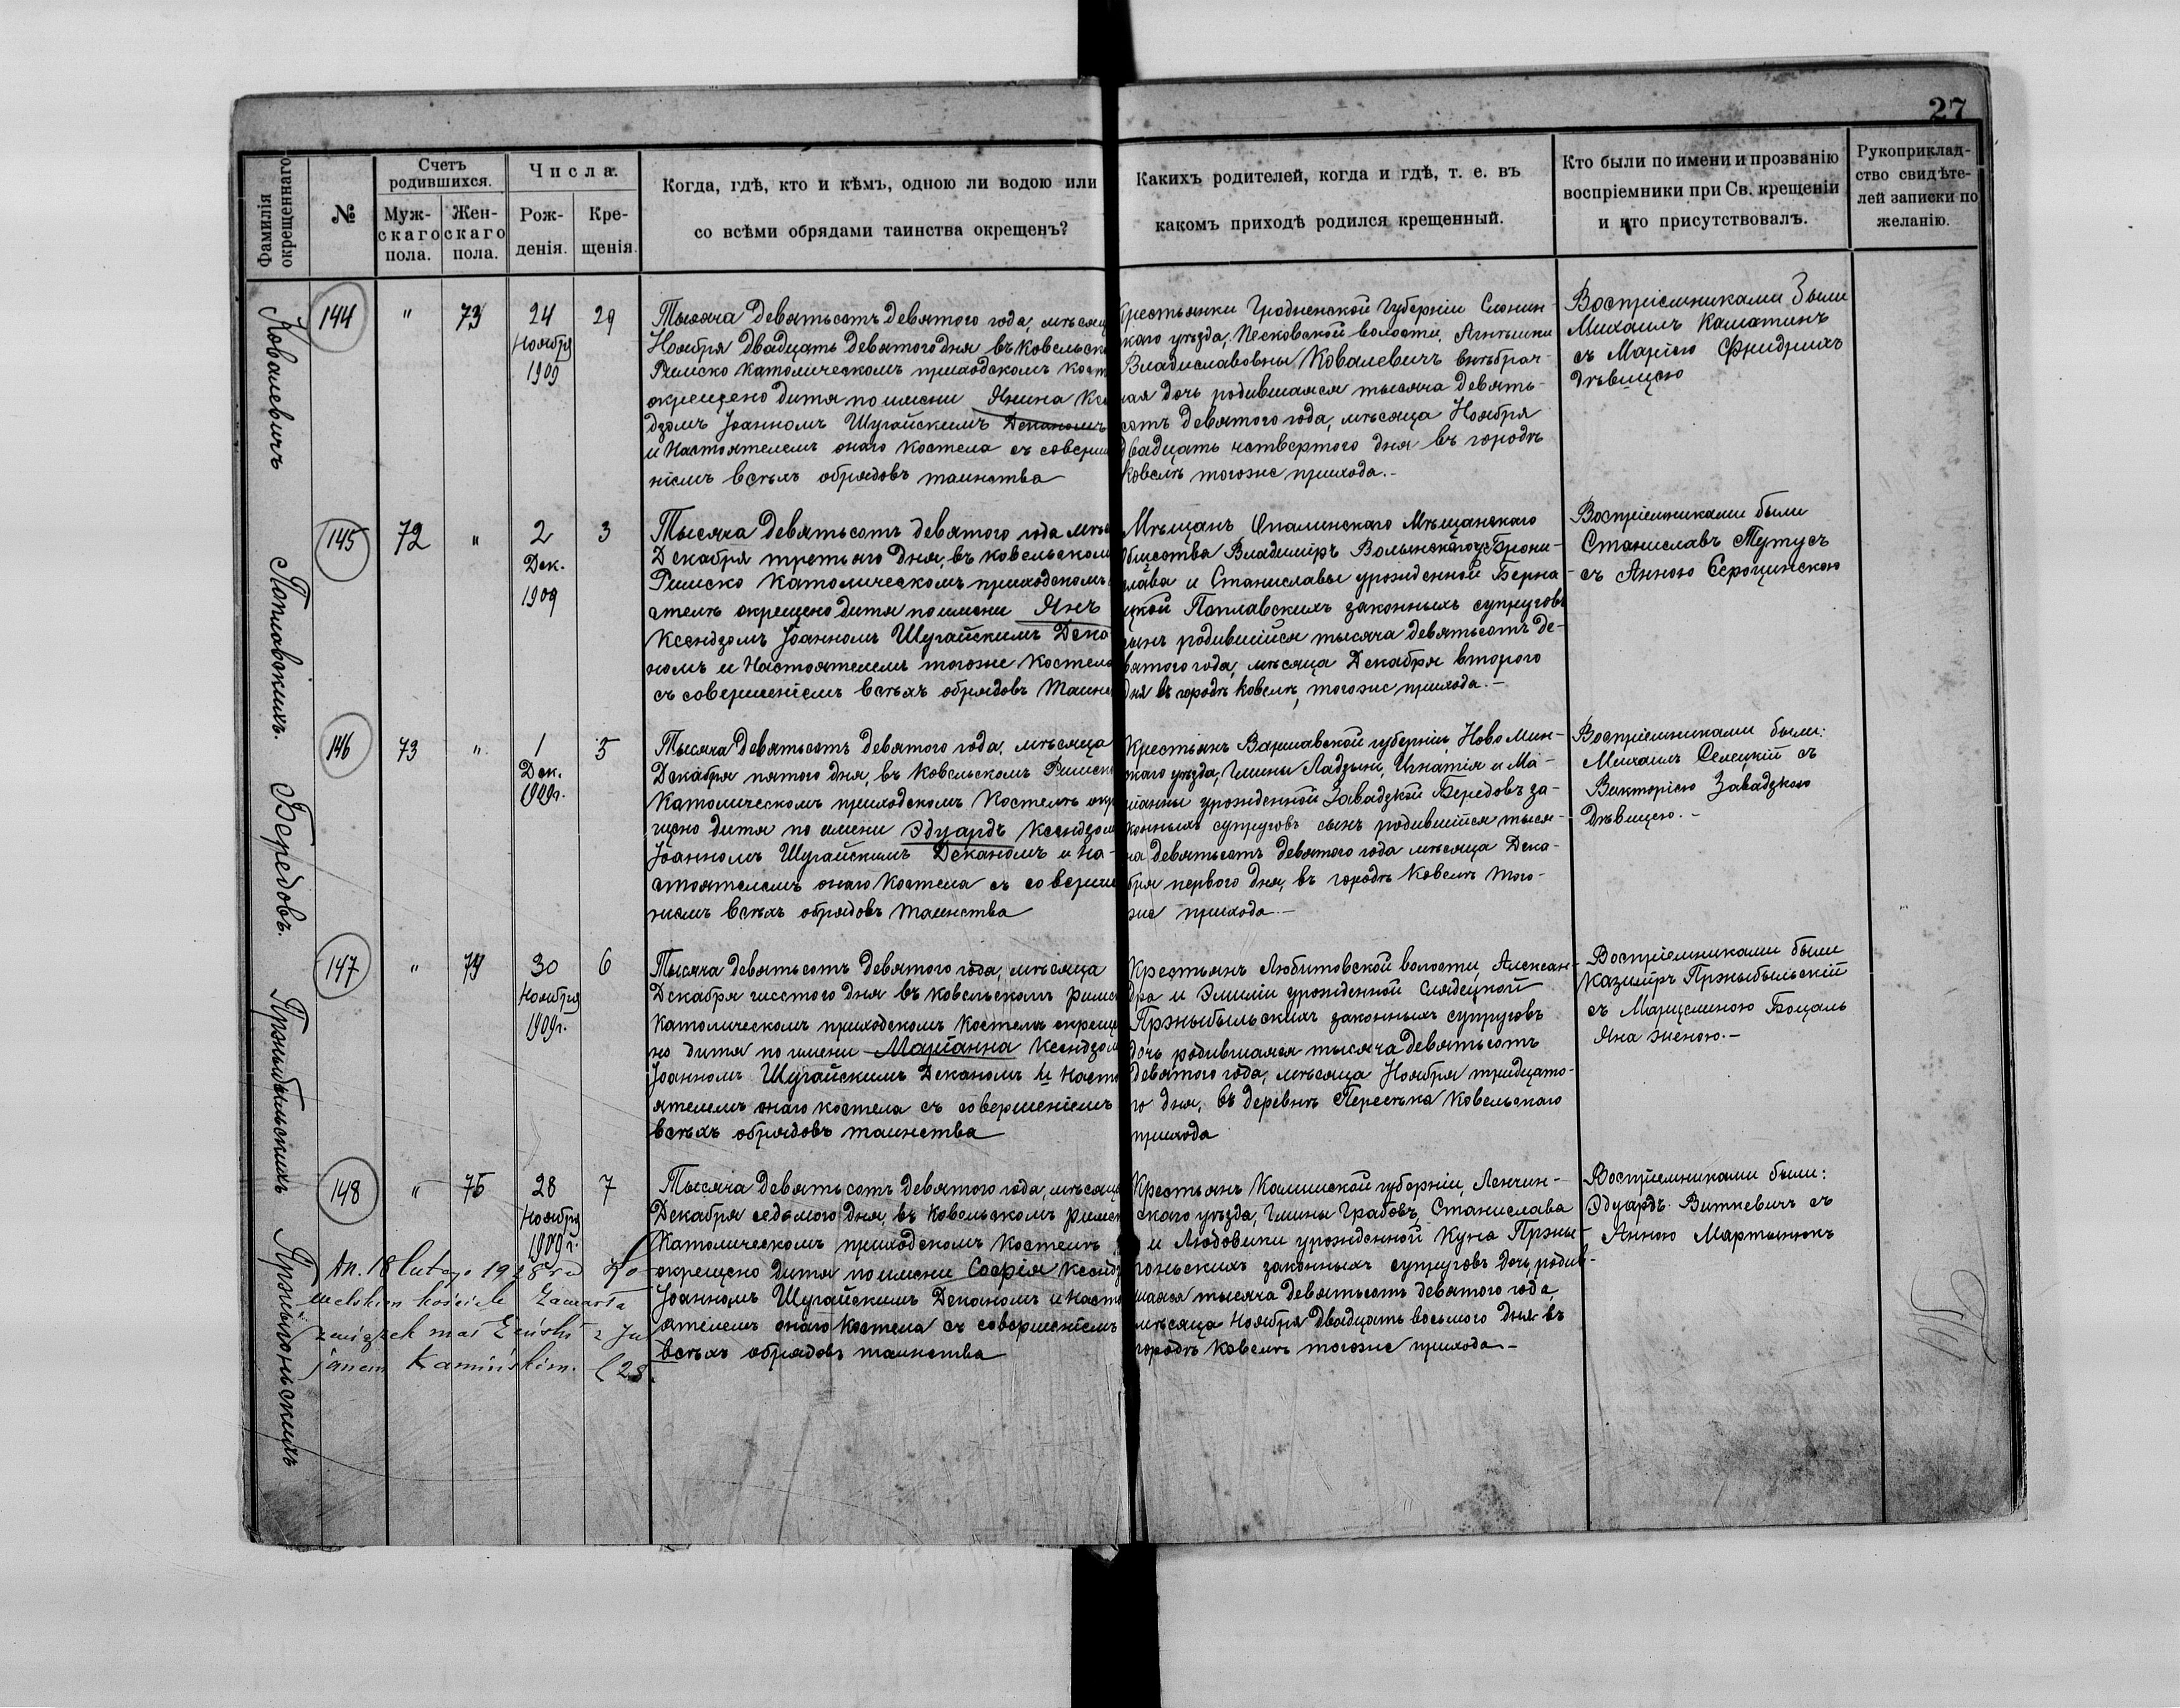 27
Фамилія окрещеннаго
№
Счетъ родившихся.
Муж-
скаго
пола.
Жен-
скаго
пола.
Числа.
Рож-
денія.
Кре-
щенія.
Когда, гдѣ, кто и кѣмъ, одною ли водою или
со всѣми обрядами таинства окрещенъ?
Какихъ родителей, когда и гдѣ, т. е. въ
какомъ приходѣ родился крещенный.
Кто были по имени и прозванію
воспріемники при Св. крещеніи
и кто присутствовалъ.
Рукоприклад-
ство свидѣте-
лей записки по
желанію.
Ковалевичъ
144
"
73
24
Ноября
1909
29
Тысяча девятьсотъ девятого года, мѣсяц
Ноября двадцать девятого дня въ Ковельско
Римско Католическомъ приходскомъ кост
окрещено дитя по имени Янина Ксе
дзомъ Іоанномъ Шугайскимъ Деканомъ
и Настоятелемъ онаго костела съ соверше
ніемъ всѣхъ обрядовъ таинства
крестьянки Гродненской губерніи Слоним-
скаго уѣзда, Песковской волости,
Владиславовны Ковалевичъ внѣбрач-
ная дочь родившаяся тысяча девять-
сотъ девятого года, мѣсяца Ноября
двадцать четвертого дня въ городѣ
Ковелѣ тогоже прихода.-
Воспріемниками были
Михаилъ
съ Маріею Фридрихъ
дѣвицею
Поплавскихъ.
145
72
"
2
Дек.
1909
3
Тысяча девятьсотъ девятого года мѣс
Декабря третьяго дня, въ Ковельском
Римско Католическомъ приходскомъ
стелѣ окрещено дитя по имени Янъ
Ксендзомъ Іоанномъ Шугайскимъ Дека
номъ и Настоятелемъ тогоже Костела
съ совершеніемъ всѣхъ обрядовъ таинс
Мѣщанъ Опалинскаго Мѣщанскаго
общества Владиміръ Волынскаго у. Брони-
слава и Станиславы урожденной Берна
цкой Поплавскихъ законныхъ супруговъ
сынъ родившійся тысяча девятьсотъ де-
вятого года, мѣсяца Декабря второго
дня въ городѣ Ковелѣ, тогоже прихода.-
Воспріемниками были
Станиславъ Тутусъ
съ Анною Сероцинскою
Бередовъ.
146
73
"
1
Дек.
1909г.
5
Тысяча девятьсотъ девятого года, мѣсяца
Декабря пятого дня, въ Ковельскомъ Римско
Католическомъ приходскомъ Костелѣ окре
щено дитя по имени Эдуардъ Ксендзом
Іоанномъ Шугайскимъ Деканомъ и На-
стоятелемъ онаго Костела съ соверше
ніемъ всѣхъ обрядовъ таинства
Крестьянъ Варшавской губерніи, Ново Мин-
скаго уѣзда, Гмины Ладзынь, Игнатія и Ма-
ріанны урожденной Завадзкой Бередовъ за-
конныхъ супруговъ сынъ родившійся тыся-
ча девятьсотъ девятого года мѣсяца Дека-
бря первого дня, въ городѣ Ковелѣ того-
же прихода.-
Воспріемниками были:
Михаилъ Селецкій съ
Викторіею Завадзкою
Дѣвицею.-
Пржыбыльскихъ
147
"
74
30
Ноября
1909г.
6
Тысяча девятьсотъ девятого года, мѣсяца
Декабря шестого дня въ Ковельскомъ римск
Католическомъ приходскомъ Костелѣ окреще
но дитя по имени Маріанна Ксендзом
Іоанномъ Шугайскимъ Деканомъ и Насто
ятелемъ онаго костела съ совершеніемъ
всѣхъ обрядовъ таинства
Крестьянъ Любитовской волости, Алексан-
дра и Эмиліи урожденной Слядецкой
Пржыбыльскихъ законныхъ супруговъ
дочь родившаяся тысяча девятьсотъ
девятого года, мѣсяца Ноября тридцато-
го дня, въ деревнѣ Пересѣка Ковельскаго
прихода
Воспріемниками были
Казимиръ Пржыбыльскій
съ Марцелиною Боцаль
Яна женою.-
148
"
75
28
Ноября
1909 г.
7
Тысяча девятьсотъ девятого года, мѣсяца
Декабря седьмого дня, въ Ковельскомъ римск
Католическомъ приходскомъ Костелѣ
окрещено дитя по имени Софія Ксендз
Іоанномъ Шугайскимъ Деканомъ и Насто
ятелемъ онаго Костела съ совершеніемъ
всѣхъ обрядовъ таинства
Крестьянъ Калишской губерніи, Ленчиц-
скаго уѣзда, Гмины Грабовъ, Станислава
и Людовики урожденной Куна Пржы-
гоньскихъ законныхъ супруговъ дочь, родив-
шаяся тысяча девятьсотъ девятого года,
мѣсяца Ноября двадцать восьмого дня въ
городѣ Ковелѣ тогоже прихода.-
Воспріемниками были:
Эдуардъ Виткевичъ съ
Анною Мартынюкъ
Пржыгоньскихъ
Dn. 18 lutego 1928 r w Ko-
welskim kościele zawarła
związek małżeński z Ju
janem Kamińskim.